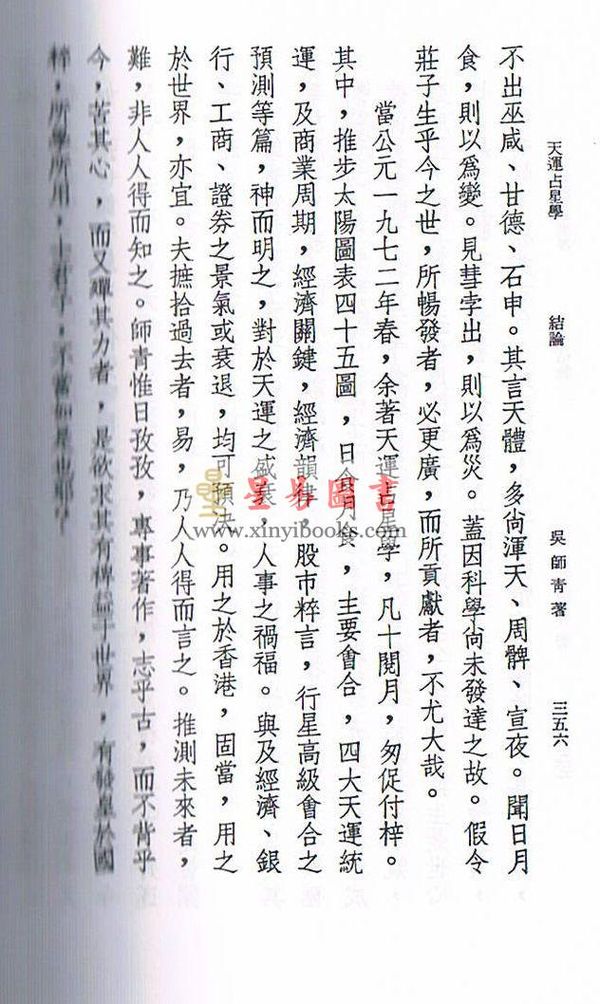 天運占星學　結論　吳師青著　三五六
不出巫咸、甘德、石申。其言天體，多尙渾天、周髀、宣夜。聞日月，
食，則以爲變。見彗孛出，則以爲災。蓋因科學尙未發達之故。假令
莊子生乎今之世，所暢發者，必更廣，而所貢獻者，不尤大哉。
當公元一九七二年春，余著天運占星學，凡十閱月，匆促付梓。
其中，推步太陽圖表四十五圖，日食月食，主要會合，四大天運統
運，及商業周期，經濟關鍵，經濟韻律，股市粹言，行星高級會合之
預測等篇，神而明之，對於天運之盛衰，人事之禍福。與及經濟、銀
行、工商、證券之景氣或衰退，均可預决。用之於香港，固當，用之
於世界，亦宜。夫摭拾過去者，易，乃人人得而言之。推測未來者，
難，非人人得而知之。師青惟日孜孜，專事著作，志乎古，而不背乎
今，苦其心，而又殫其力者，是欲求其有裨益于世界，有發皇於國
粹，所學所用，士君子，不當如是也耶？
星易圖書
www.xinyibooks.com